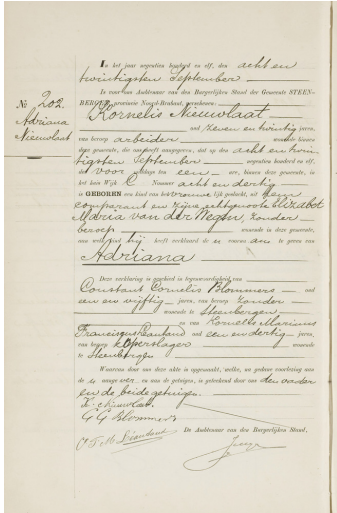 No 202.
Adriana
Nieuwlaat
In het jaar negentien honderd en elf, den acht en
twintigsten September
is voor ons Ambtenaar van den Burgerlijken Stand der Gemeente STEEN-
BERGEN, provincie Noord-Brabant, verschenen:
Kornelis Nieuwlaat
oud zeven en twintig jaren,
van beroep arbeider wonende binnen
deze gemeente, die ons heeft aangegeven, dat op den acht en twin
tigsten September negentien honderd en elf,
des voormiddags ten een ure, binnen deze gemeente, in
het huis Wijk C Nommer acht en dertig
is GEBOREN een kind van het vrouwelijk geslacht, uit hem
comparant en zijne echtgenoote Elizabet
Maria van der Wegen, zonder
beroep wonende in deze gemeente,
aan welk kind hij heeft verklaard de voornaam te geven van
Adriana
Deze verklaring is geschied in tegenwoordigheid van
Constant Cornelis Blommers oud
een en vijftig jaren, van beroep zonder
wonende te Steenbergen
en van Kornelis Marinus
Franciscus oud een en dertig jaren,
van beroep koperslager wonende
te Steenbergen
Waarvan door ons deze akte is opgemaakt, welke, na gedane voorlezing aan
de aangever en aan de getuigen, is geteekend door ons den vader
en de beide getuigen.
Nieuwlaat
Blommers
De Ambtenaar van den Burgerlijken Stand,